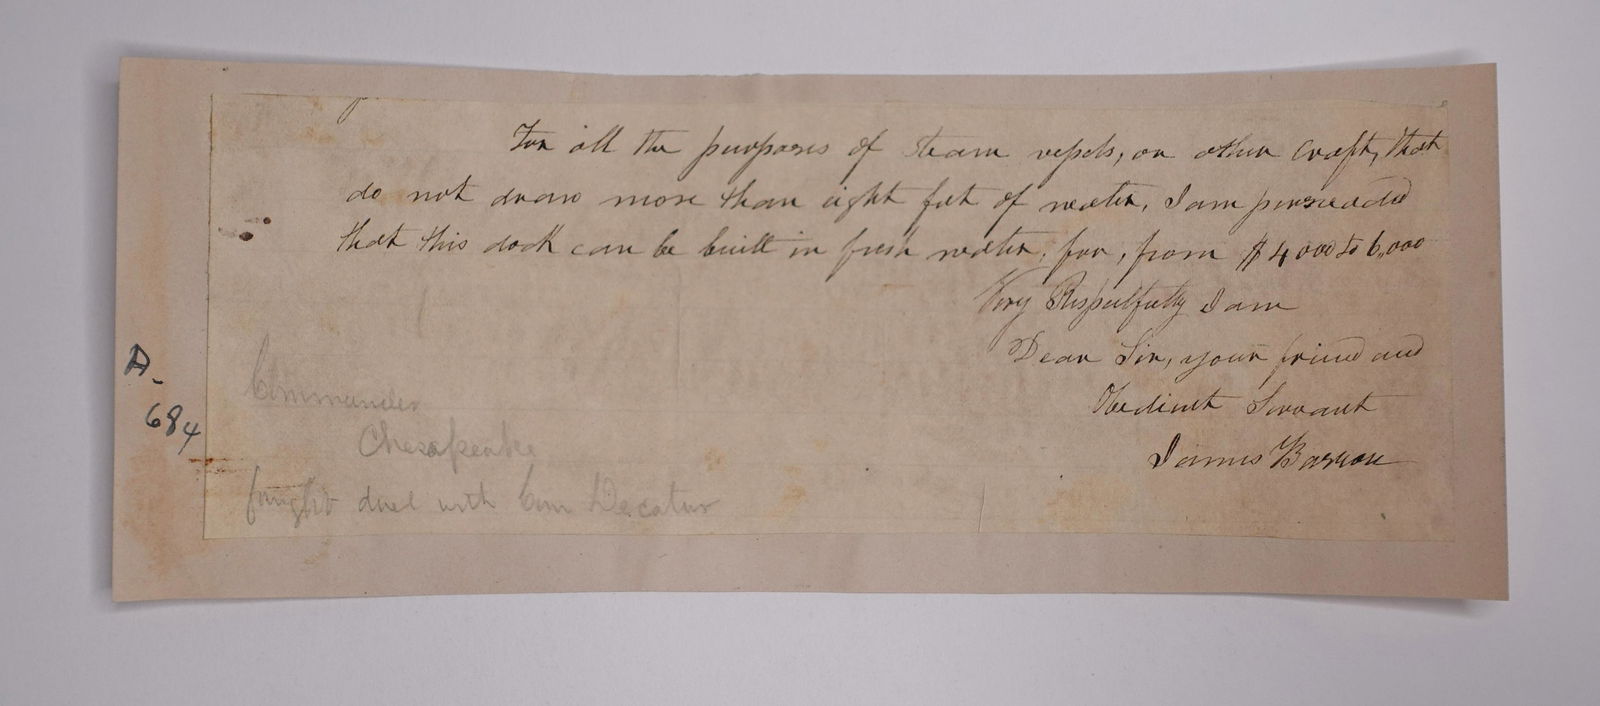 For all the purposes of steam vessels, or other craft, that
do not draw more than eight feet of water, I am persuaded
that this dock can be built in fresh water, for, from $4000 to 6,000
Very Respectfully I am
Dear Sir, your friend and
Obedient Servant
James Barron
A-
684
Commander
Chesapeake
fought duel with Com Decatur